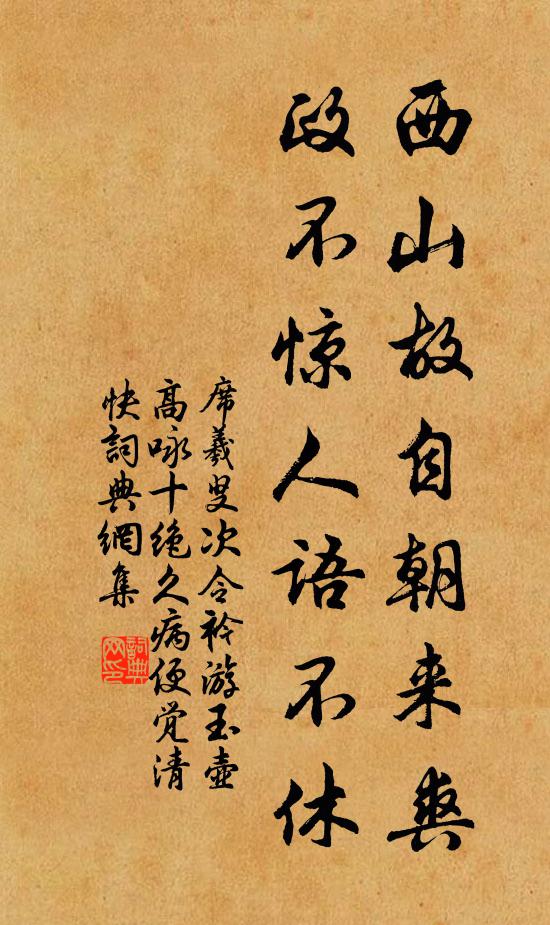 西山故自朝来爽
政不惊人语不休
席羲叟次令衿游玉壶
高咏十绝久病便觉清
快詞典網集
詞典網印